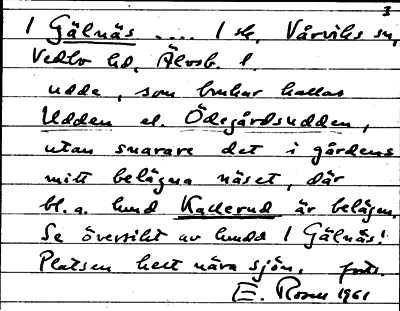 3
1 Gälnäs .... 1 sk. Vårviks sn,
Vedbo hd, Älvsb. l.
udde, som brukar kallas
Udden el. Ödegårdsudden,
utan snarare det i gårdens
mitt belägna näset, där
bl.a. lund Kallerud är belägen.
Se översikt av lunds 1 Gälnäs!
Platsen helt nära sjön. forts.
E. Rosen 1961